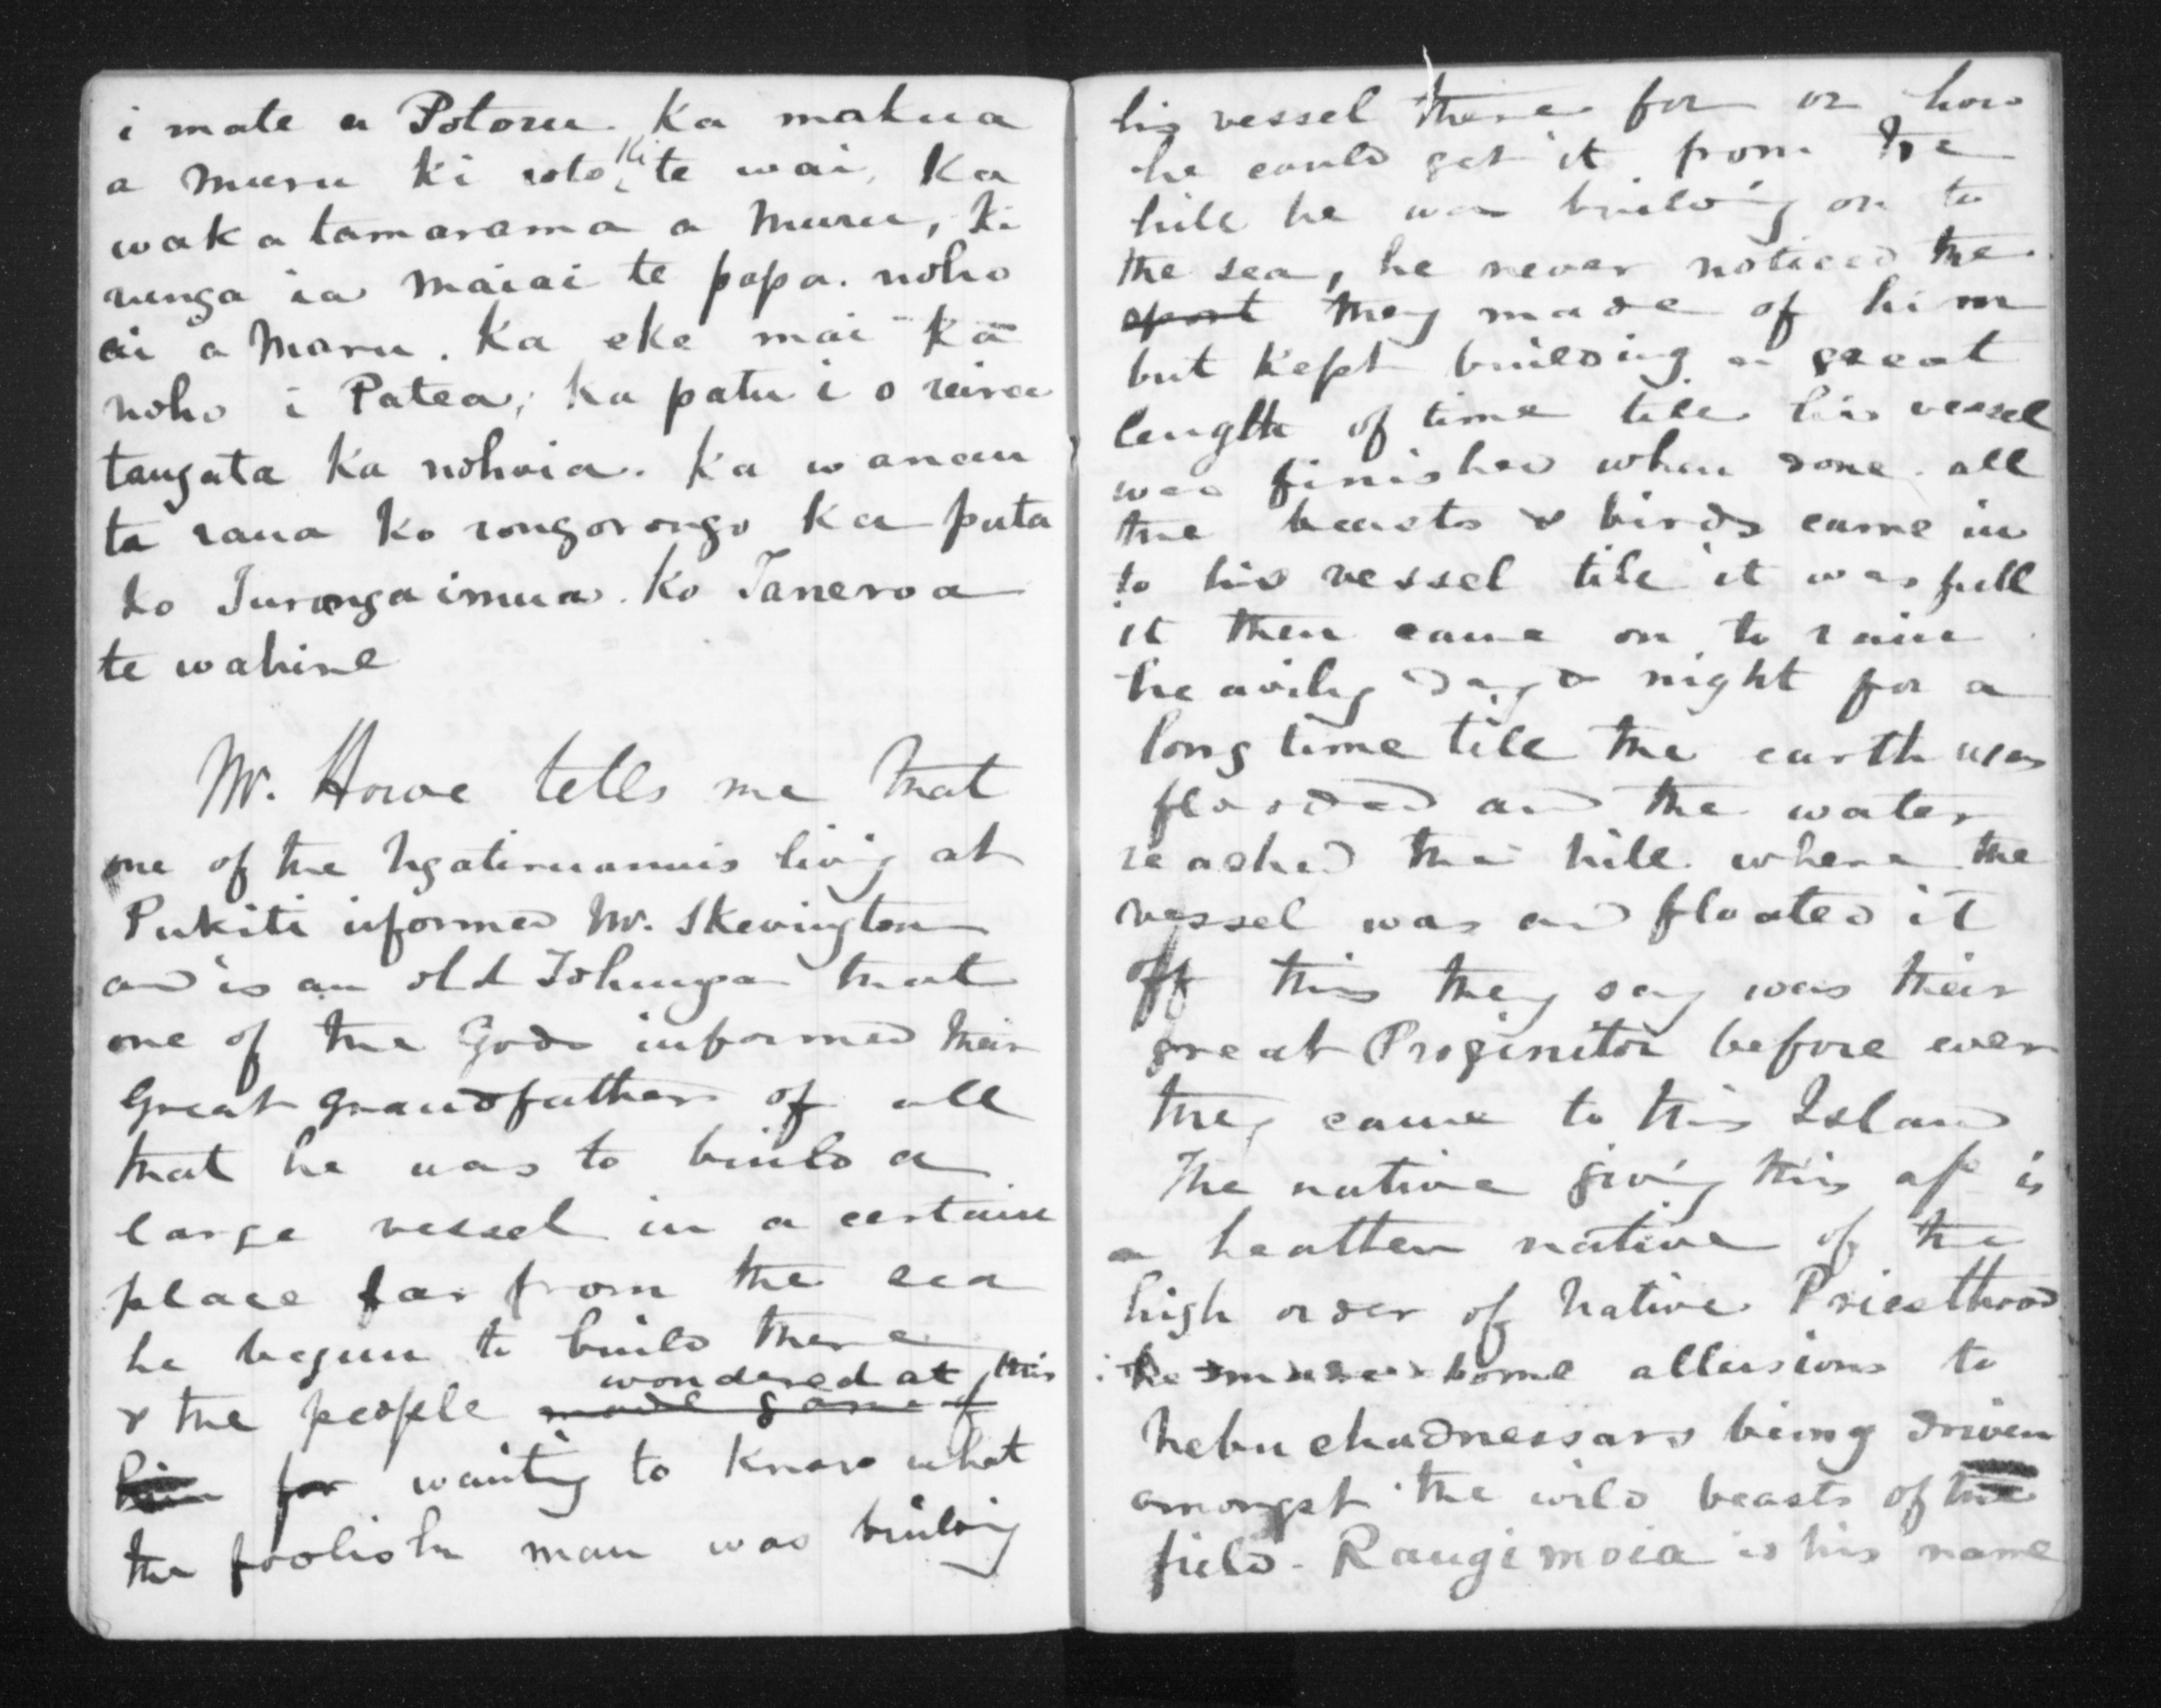 i mate a Potoru. Ka makua
a Muru ki roto ki te wai, Ka
wakatamarama a Muru, ki
runga ia Maiai te papa. noho
ai a Maru. Ka eke mai ka
noho i Patea, ka patu i o reira
tangata Ka nohoia. Ka wanau
ta raua ko rongorongo Ka puta
ko Turangaimua. Ko Taneroa
te wahine
Mr. Howe tells me that
one of the Ngatiruanuis living at
Pukiti informed Mr. Skevington
and is an old Tohunga that
one of the Gods informed their
Great grandfather of all
that he was to build a
large vessel in a certain
place far from the sea
he begun to build there
& the people made game of wondered at this
him for wanting to know what
the foolish man was building
his vessel there for or how
he could get it from the
hill he was building on to
the sea, he never noticed the
sport they made of him
but kept building a great
length of time till his vessel
was finished when done all
the beasts & birds came in
to his vessel till it was full
it then came on to rain
heavily day & night for a
long time till the earth was
flooded and the water
reached the hill where the
vessel was and floated it
off this they say was their
great Proginitor before ever
they came to this Island
The native giving this a/c is
a heathen native of the
high order of Native Priesthood
he some allusions to
Nebuchadnessars being driven
amongst the wild beasts of the
field - Rangimoia is his name